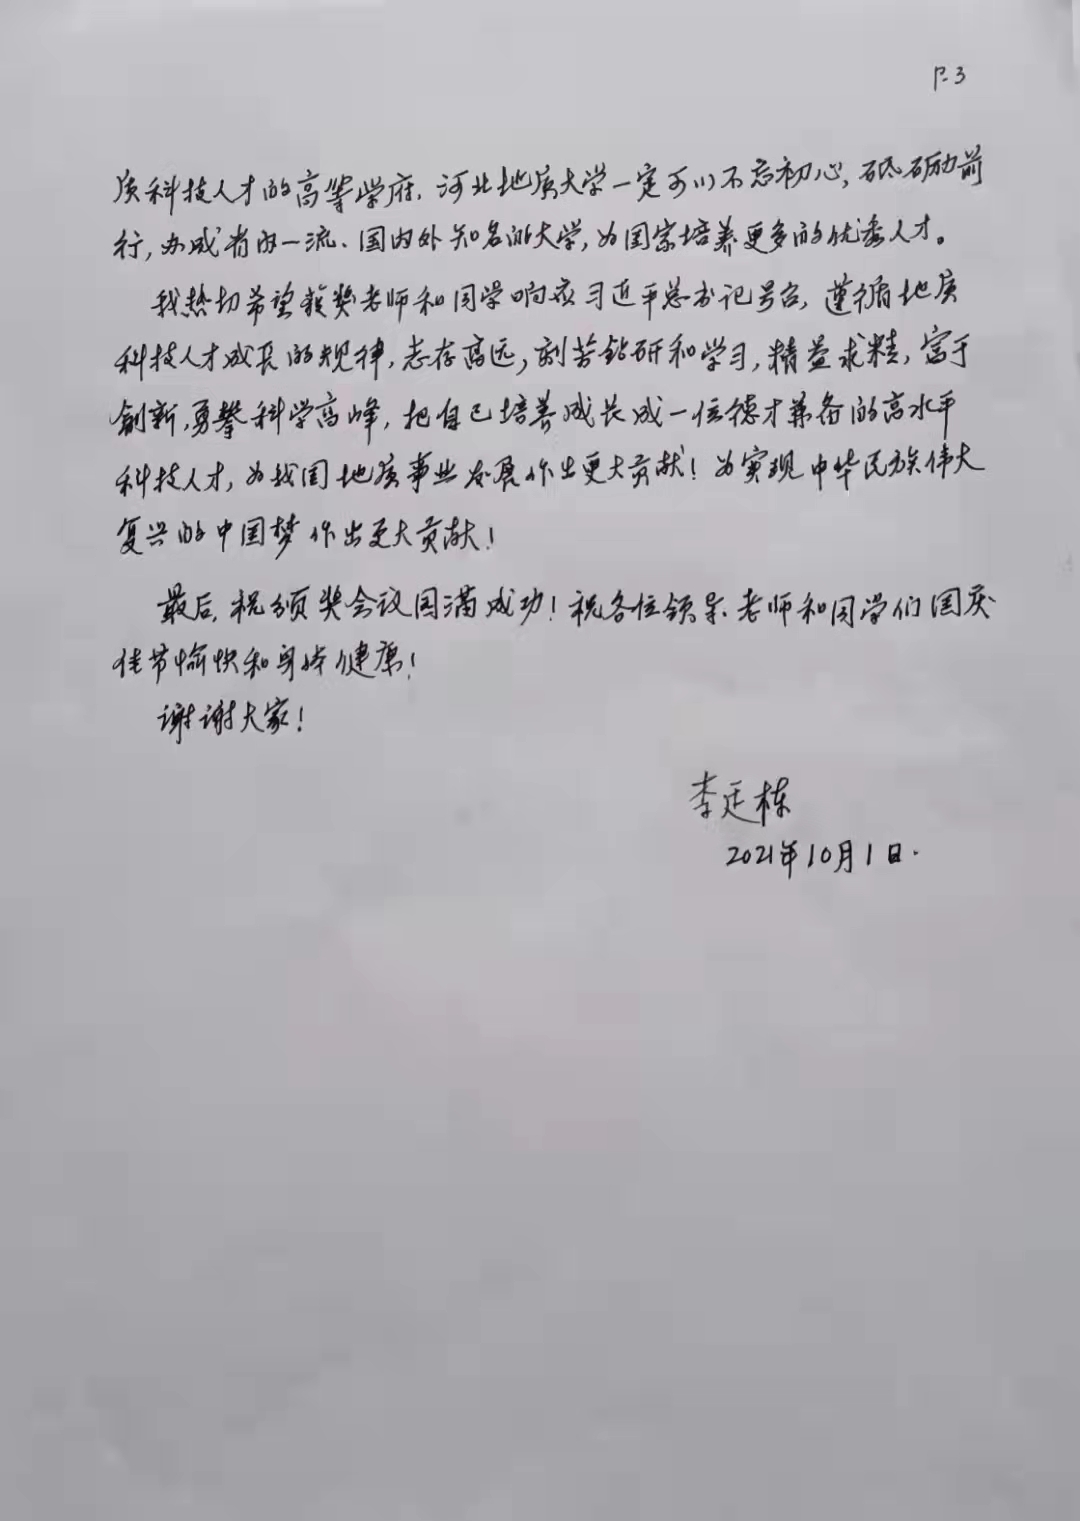 P.3
质科技人才的高等学府，河北地质大学一定可以不忘初心，砥砺前
行，办成省内一流、国内外知名的大学，为国家培养更多的优秀人才。
我热切希望获奖老师和同学响应习近平总书记号召，遵循地质
科技人才成长的规律，志存高远，刻苦钻研和学习，精益求精，富于
创新，勇攀科学高峰，把自己培养成长成一位德才兼备的高水平
科技人才，为我国地质事业发展作出更大贡献！为实现中华民族伟大
复兴的中国梦作出更大贡献！
最后，祝颁奖会议圆满成功！祝各位领导、老师和同学们国庆
佳节愉快和身体健康！
谢谢大家！
李廷栋
2021年10月1日.